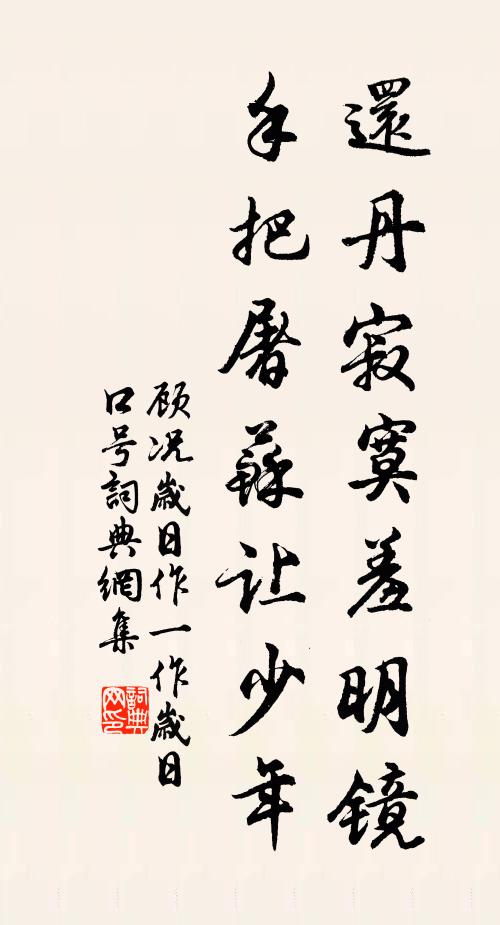 還丹寂寞羞明镜
手把屠蘇让少年
顾况歲日作一作歲日
口号詞典網集
詞典网印